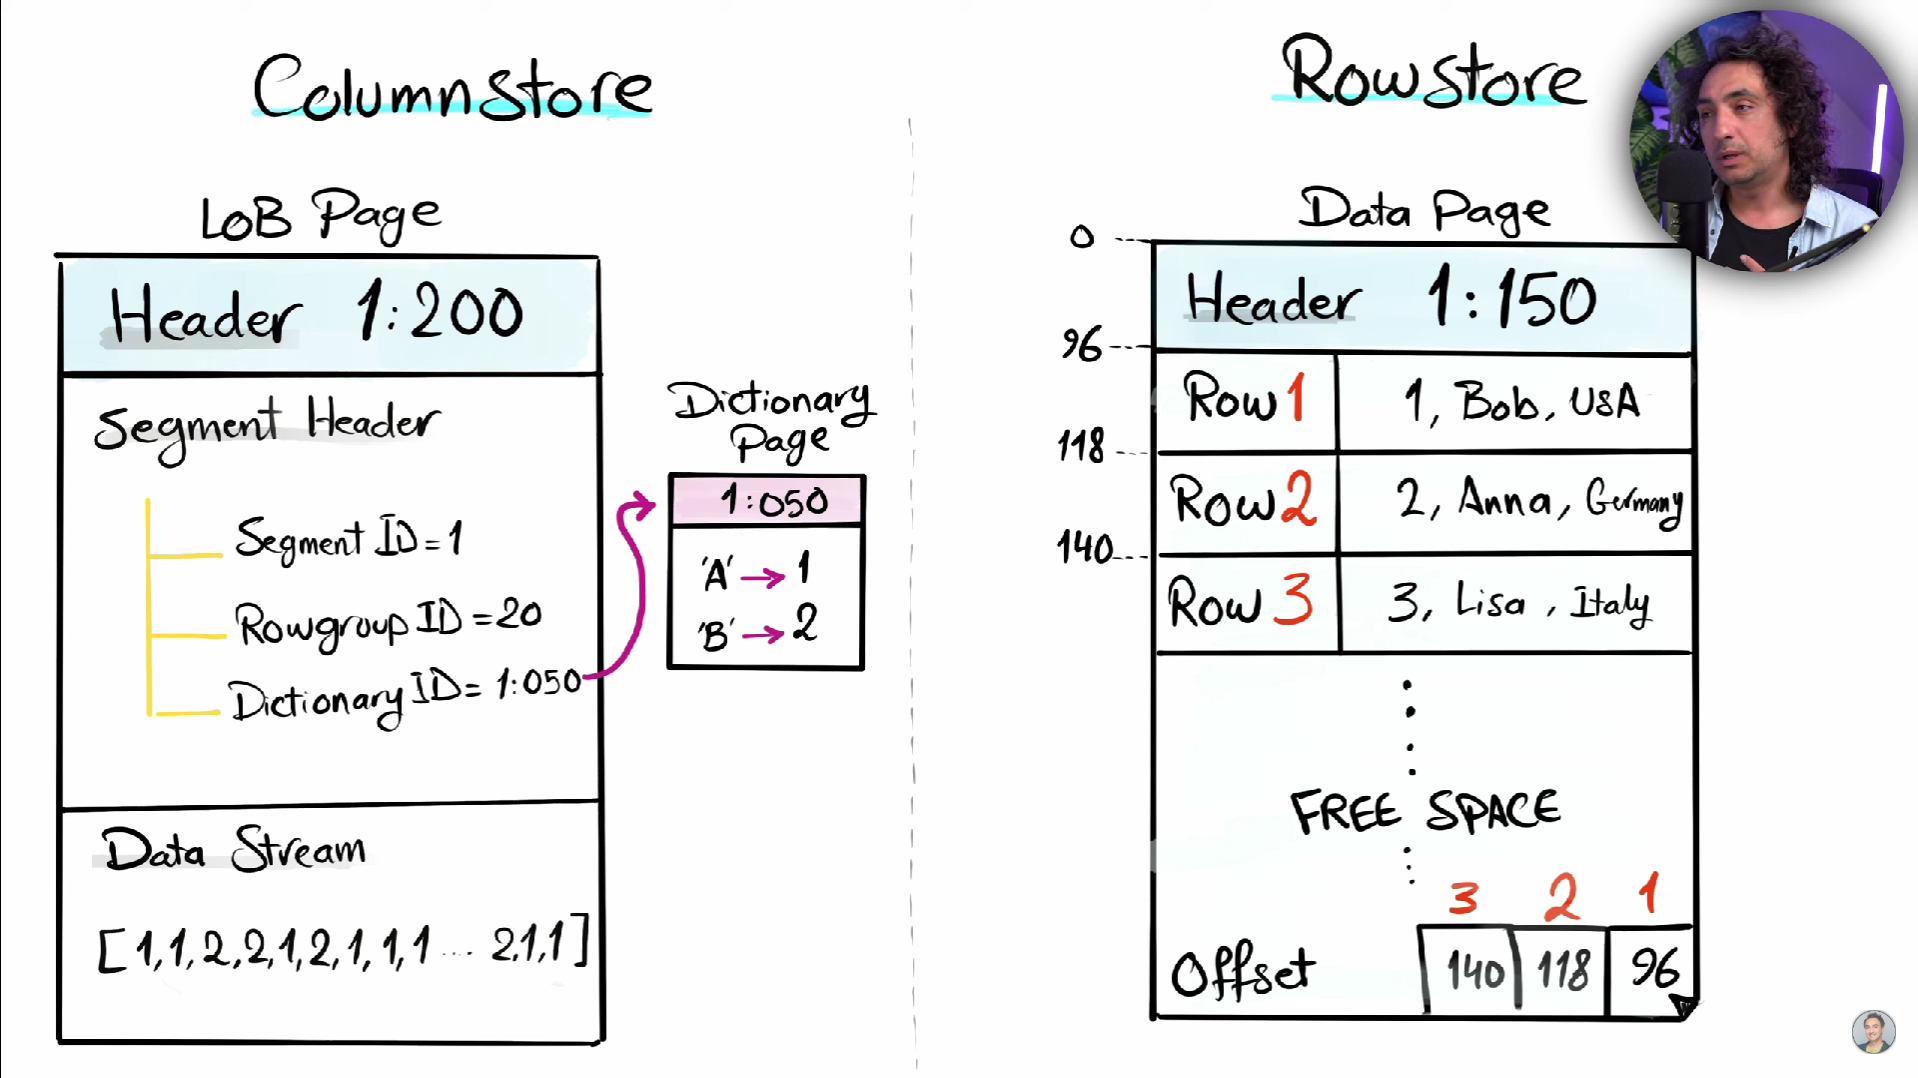 ColumnStore
LOB Page
Header 1:200
Segment Header
Segment ID = 1
Rowgroup ID = 20
Dictionary ID = 1:050
Data Stream
[1,1,2,2,1,2,1,1,1 .... 2,1,1]
Dictionary
Page
1:050
'A' → 1
'B' → 2
RowStore
Data Page
0
Header 1:150
96
Row 1 1, Bob, USA
118
Row 2 2, Anna, Germany
140
Row 3 3, Lisa, Italy
FREE SPACE
3 2 1
Offset 140 118 96